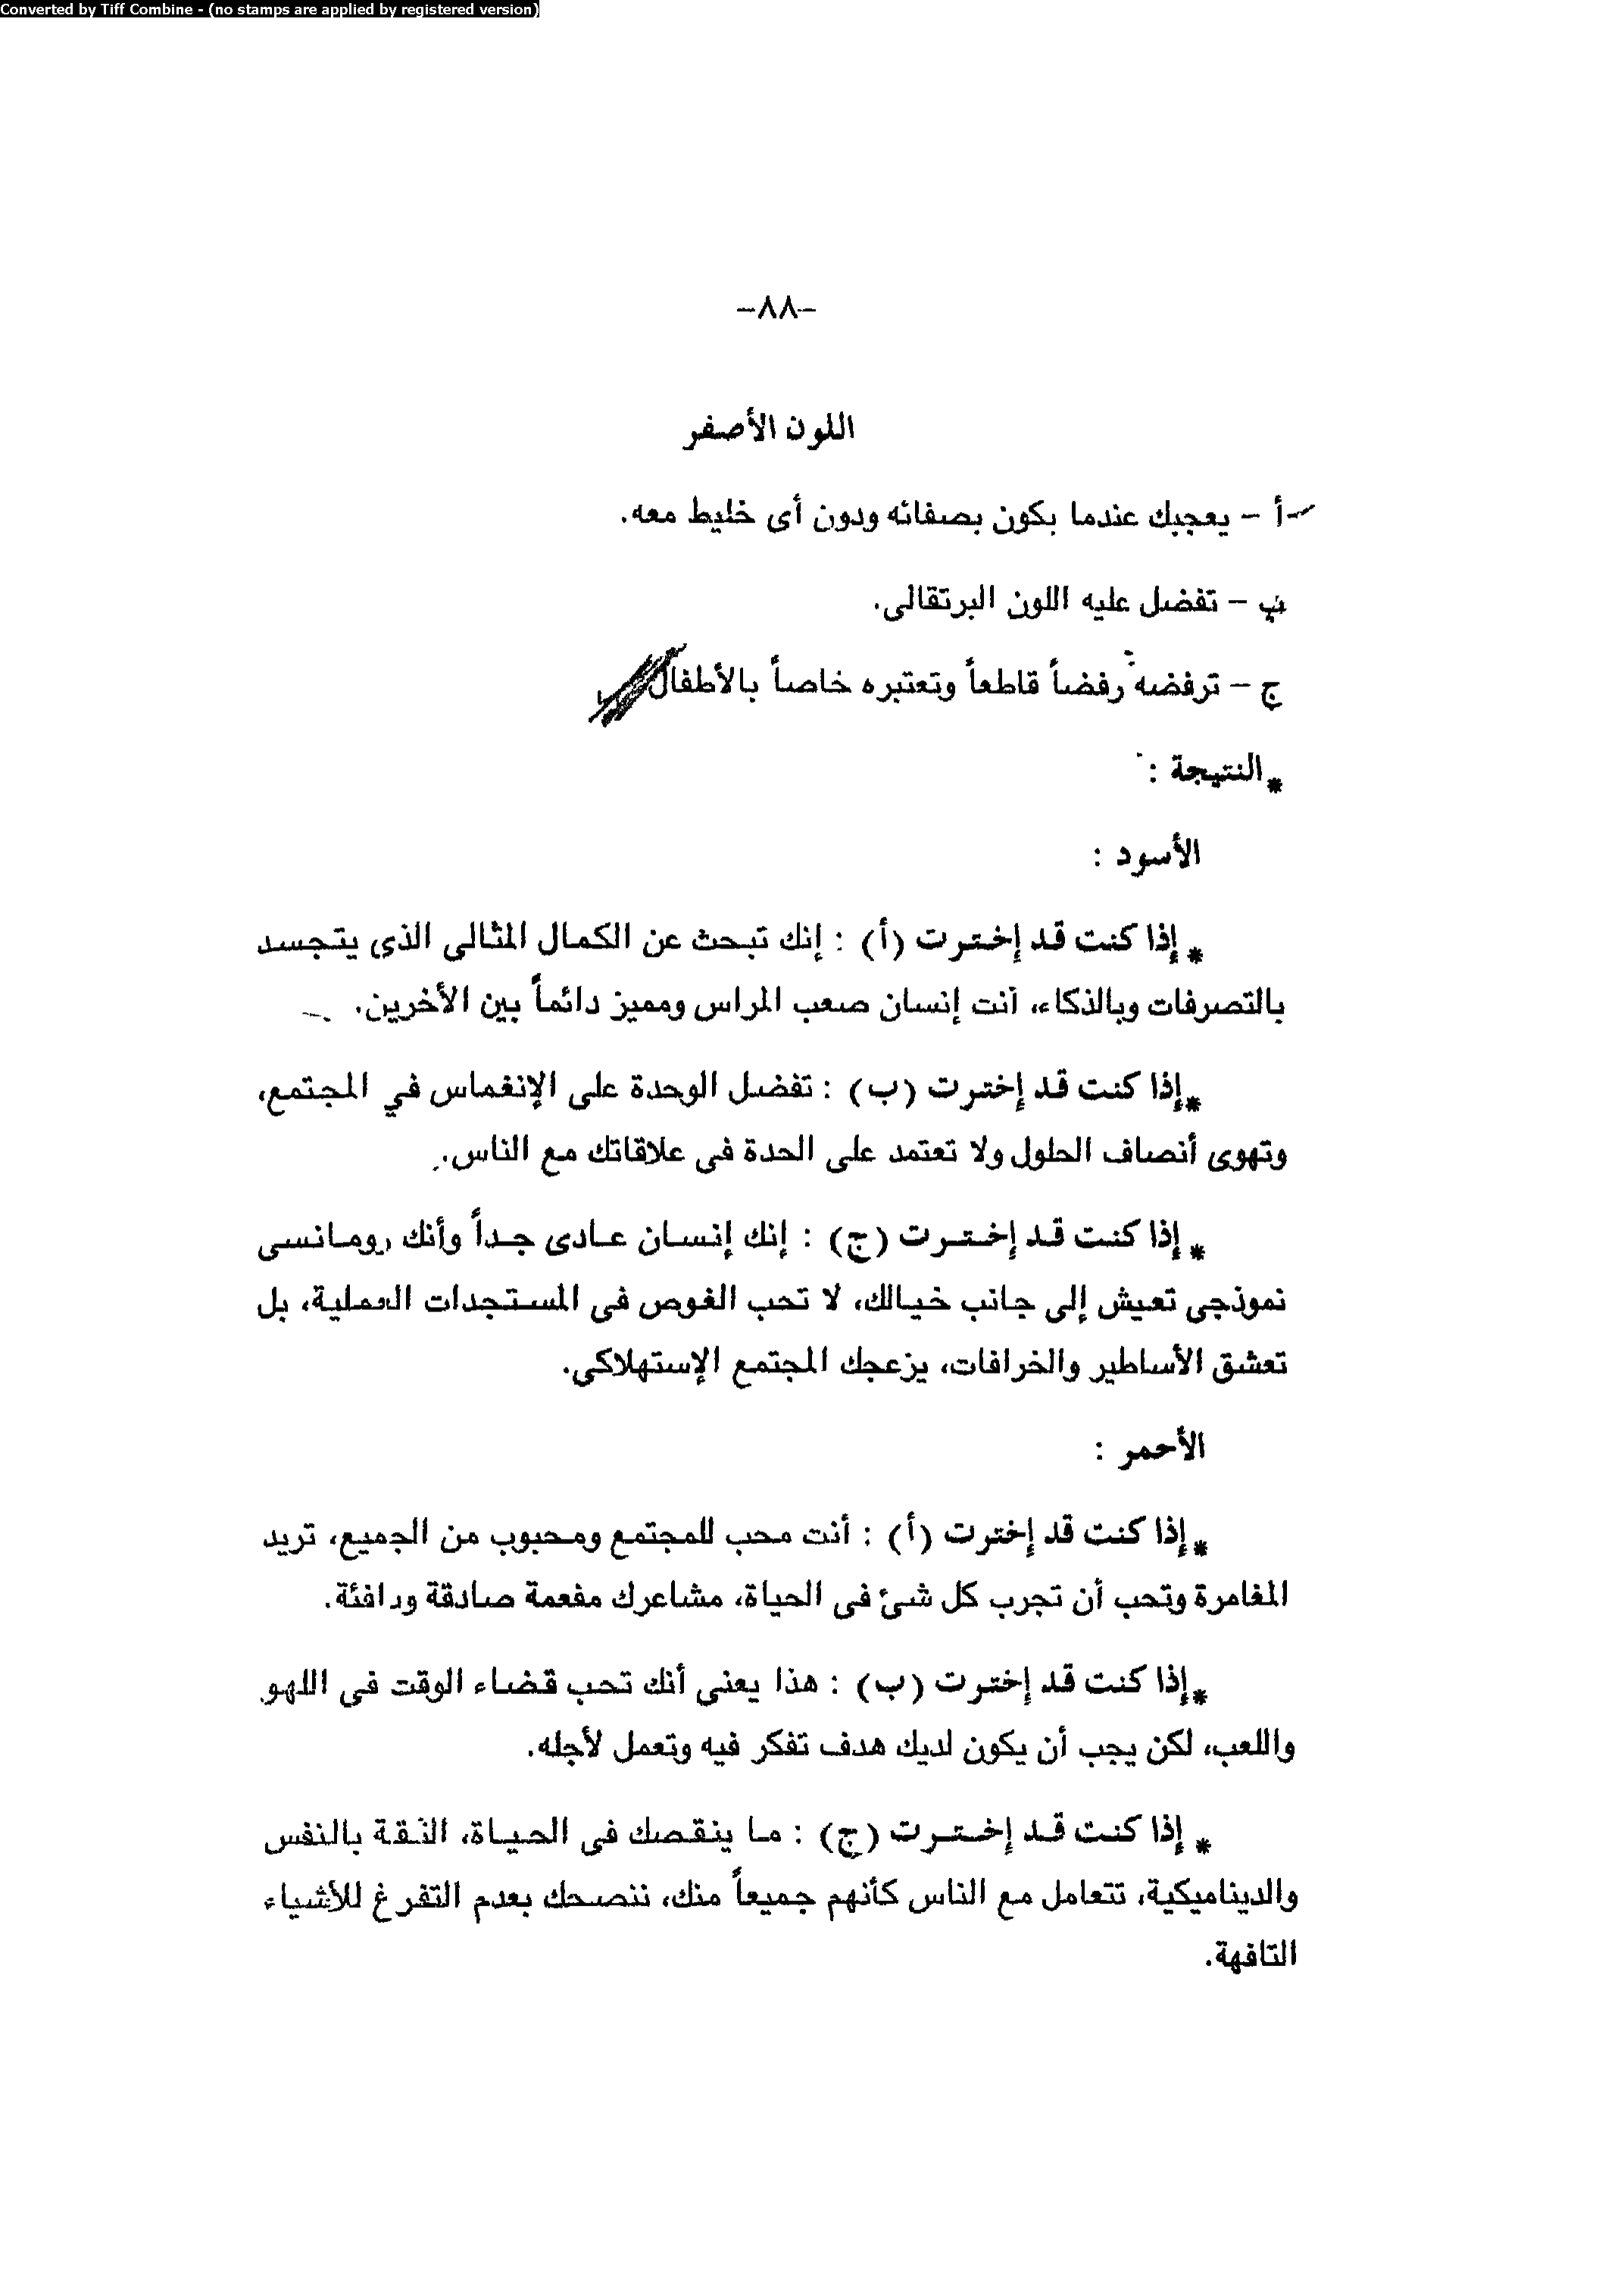 Converted by Tiff Combine - (no stamps are applied by registered version)
-٨٨-
اللون الأصفر
أ - يعجبك عندما يكون بصفائه ودون أى خليط معه.
ب - تفضل عليه اللون البرتقالى.
ج - ترفضه رفضاً قاطعاً وتعتبره خاصاً بالأطفال
* النتيجة :
الأسود :
* إذا كنت قد إخترت (أ) : إنك تبحث عن الكمال المثالى الذى يتجسد
بالتصرفات وبالذكاء، أنت إنسان صعب المراس ومميز دائماً بين الأخرين.
* إذا كنت قد إخترت (ب) : تفضل الوحدة على الإنغماس في المجتمع،
وتهوى أنصاف الحلول ولا تعتمد على الحدة فى علاقاتك مع الناس.
* إذا كنت قد إخترت (ج) : إنك إنسان عادى جداً وأنك رومانسى
نموذجى تعيش إلى جانب خيالك، لا تحب الغوص فى المستجدات العملية، بل
تعشق الأساطير والخرافات، يزعجك المجتمع الإستهلاكى.
الأحمر :
* إذا كنت قد إخترت (أ) : أنت محب للمجتمع ومحبوب من الجميع، تريد
المغامرة وتحب أن تجرب كل شئ فى الحياة، مشاعرك مفعمة صادقة ودافئة.
* إذا كنت قد إخترت (ب) : هذا يعنى أنك تحب قضاء الوقت فى اللهو
واللعب، لكن يجب أن يكون لديك هدف تفكر فيه وتعمل لأجله.
* إذا كنت قد إخترت (ج) : ما ينقصك فى الحياة، الثقة بالنفس
والديناميكية، تتعامل مع الناس كأنهم جميعاً منك، ننصحك بعدم التفرغ للأشياء
التافهة.